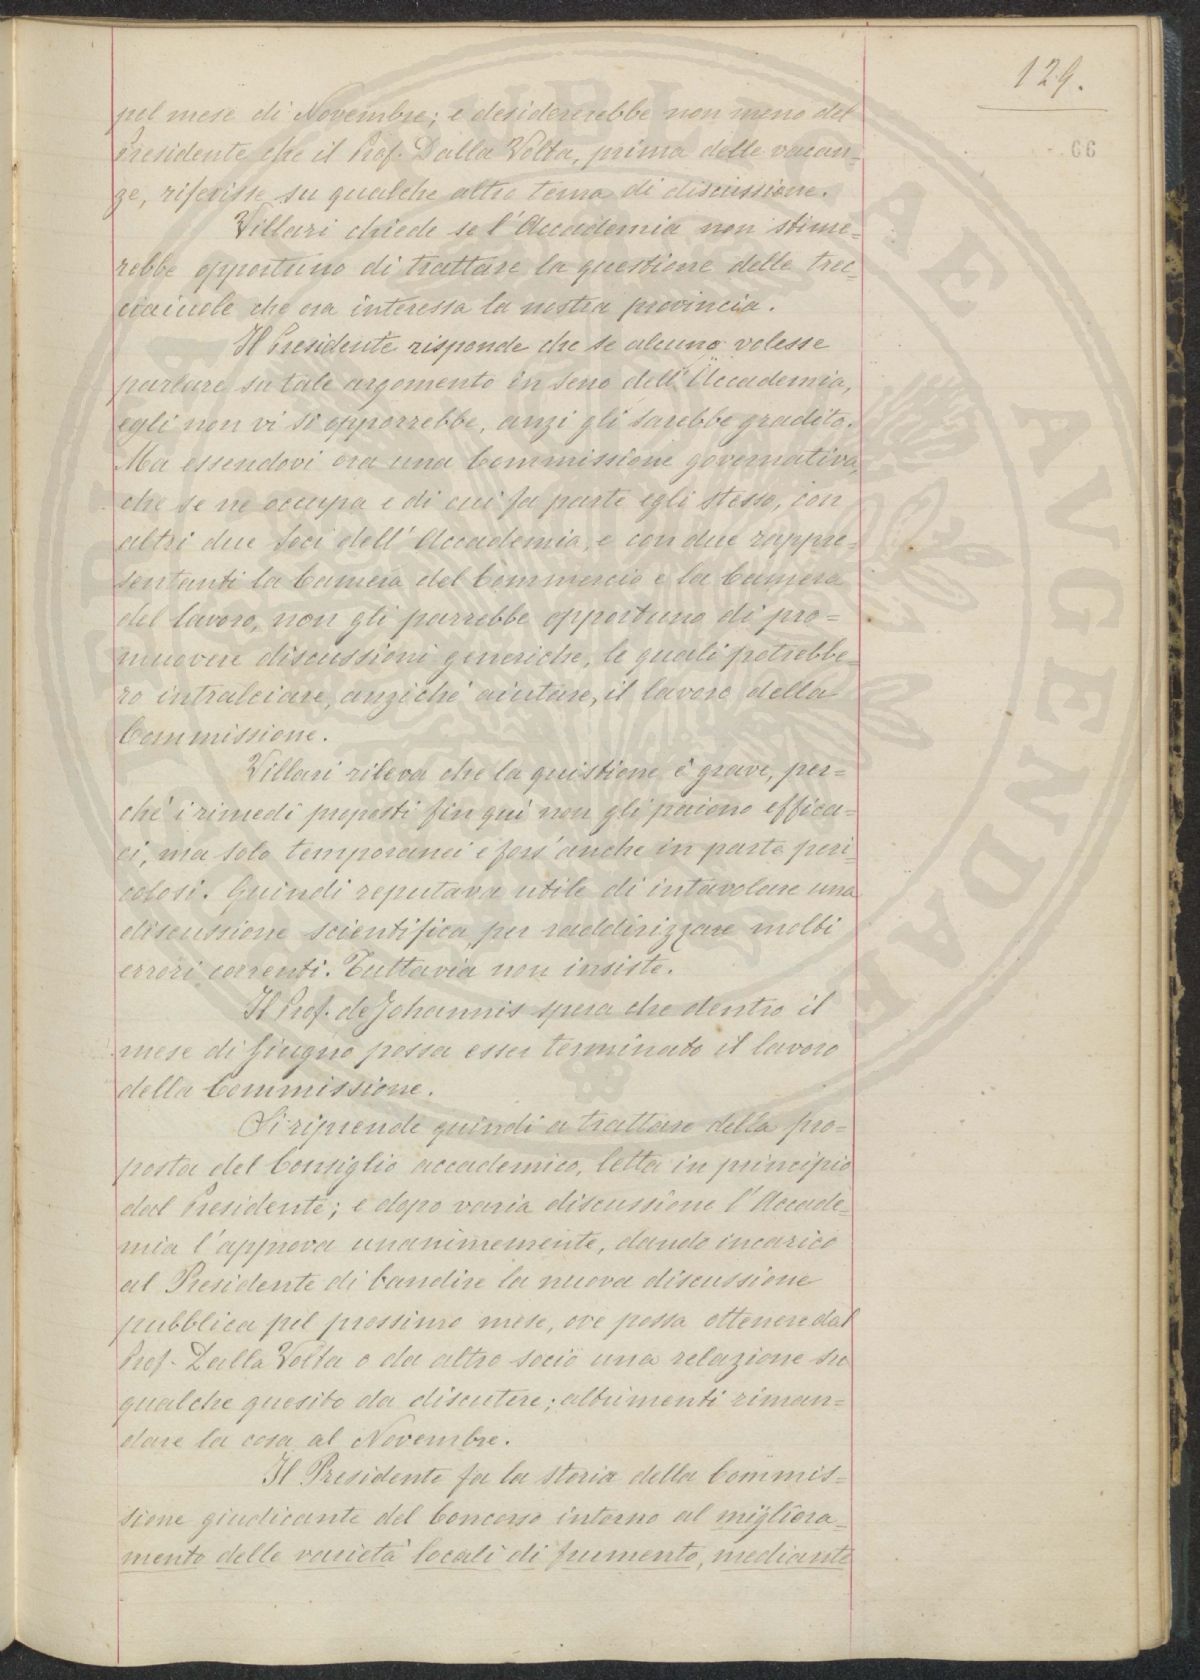 129.
66
pel mese di Novembre; e desidererebbe non meno del
Presidente che il Prof. Dalla Volta, prima delle vacan=
ze, riferisse su qualche altro tema di discussione.
Villari chiede se l'Accademia non stime=
rebbe opportuno di trattare la questione delle trec=
ciaiuole che ora interessa la nostra provincia.
Il Presidente risponde che se alcuno volesse
parlare su tale argomento in seno dell'Accademia,
egli non vi si opporrebbe, anzi gli sarebbe gradito.
Ma essendovi ora una Commissione governativa,
che se ne occupa e di cui fa parte egli stesso, con
altri due Soci dell'Accademia, e con due rappre=
sentanti la Camera del Commercio e la Camera
del lavoro, non gli parrebbe opportuno di pro=
muovere discussioni generiche, le quali potrebbe=
ro intralciare, anziché aiutare, il lavoro della
Commissione.
Villari rileva che la quistione è grave, per=
ché i rimedi proposti fin qui non gli paiono effica=
ci, ma solo temporanei e fors'anche in parte peri=
colosi. Quindi reputava utile di intavolare una
discussione scientifica per raddirizzare molti
errori correnti. Tuttavia non insiste.
Il Prof. de Johannis spera che dentro il
mese di Giugno possa esser terminato il lavoro
della Commissione.
Si riprende quindi a trattare della pro=
posta del Consiglio accademico, letta in principio
dal Presidente; e dopo varia discussione l'Accade=
mia l'approva unanimemente, dando incarico
al Presidente di bandire la nuova discussione
pubblica pel prossimo mese, ove possa ottenere dal
Prof. Dalla Volta o da altro socio una relazione su
qualche quesito da discutere; altrimenti riman=
dare la cosa al Novembre.
Il Presidente fa la storia della Commis=
sione giudicante del Concorso intorno al migliora=
mento delle varietà locali di frumento, mediante
PUBLICAE AVGENDAE